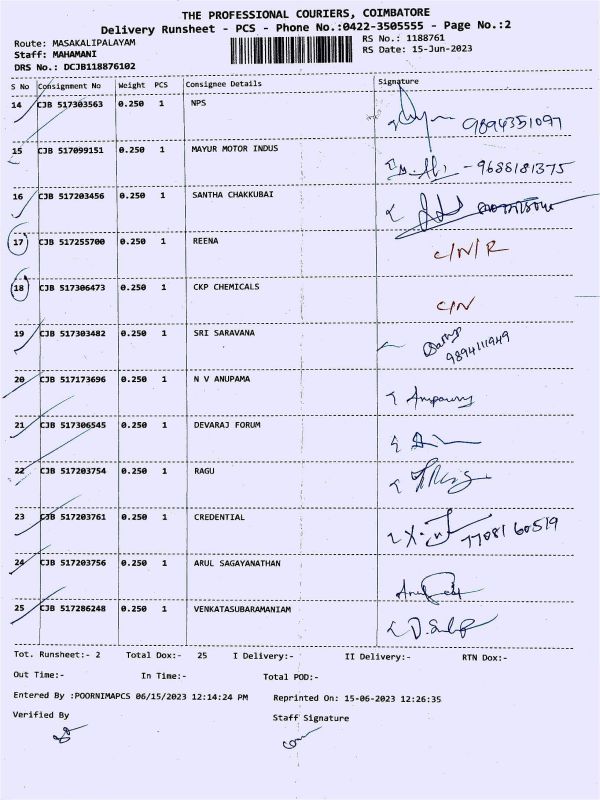 THE PROFESSIONAL COURIERS, COIMBATORE
Delivery Runsheet - PCS - Phone No.:0422-3505555 - Page No.:2
Route: MASAKALIPALAYAM RS No.: 1188761
Staff: MAHAMANI RS Date: 15-Jun-2023
DRS No.: DCJB118876102
S No Consignment No Weight PCS Consignee Details Signature
14 CJB 517303563 0.250 1 NPS 9894351097
15 CJB 517099151 0.250 1 MAYUR MOTOR INDUS - 9688181375
16 CJB 517203456 0.250 1 SANTHA CHAKKUBAI
17 CJB 517255700 0.250 1 REENA C/N/R
18 CJB 517306473 0.250 1 CKP CHEMICALS C/N
19 CJB 517303482 0.250 1 SRI SARAVANA 9894111949
20 CJB 517173696 0.250 1 N V ANUPAMA
21 CJB 517306545 0.250 1 DEVARAJ FORUM
22 CJB 517203754 0.250 1 RAGU
23 CJB 517203761 0.250 1 CREDENTIAL 7708160519
24 CJB 517203756 0.250 1 ARUL SAGAYANATHAN
25 CJB 517286248 0.250 1 VENKATASUBARAMANIAM
Tot. Runsheet:- 2 Total Dox:- 25 I Delivery:- II Delivery:- RTN Dox:-
Out Time:- In Time:- Total POD:-
Entered By :POORNIMAPCS 06/15/2023 12:14:24 PM Reprinted On: 15-06-2023 12:26:35
Verified By Staff Signature